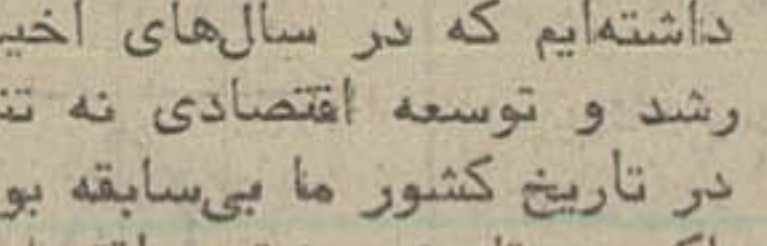 داشته‌ایم که در سال‌های اخیر
رشد و توسعه اقتصادی نه تن
در تاریخ کشور ما بی‌سابقه بو